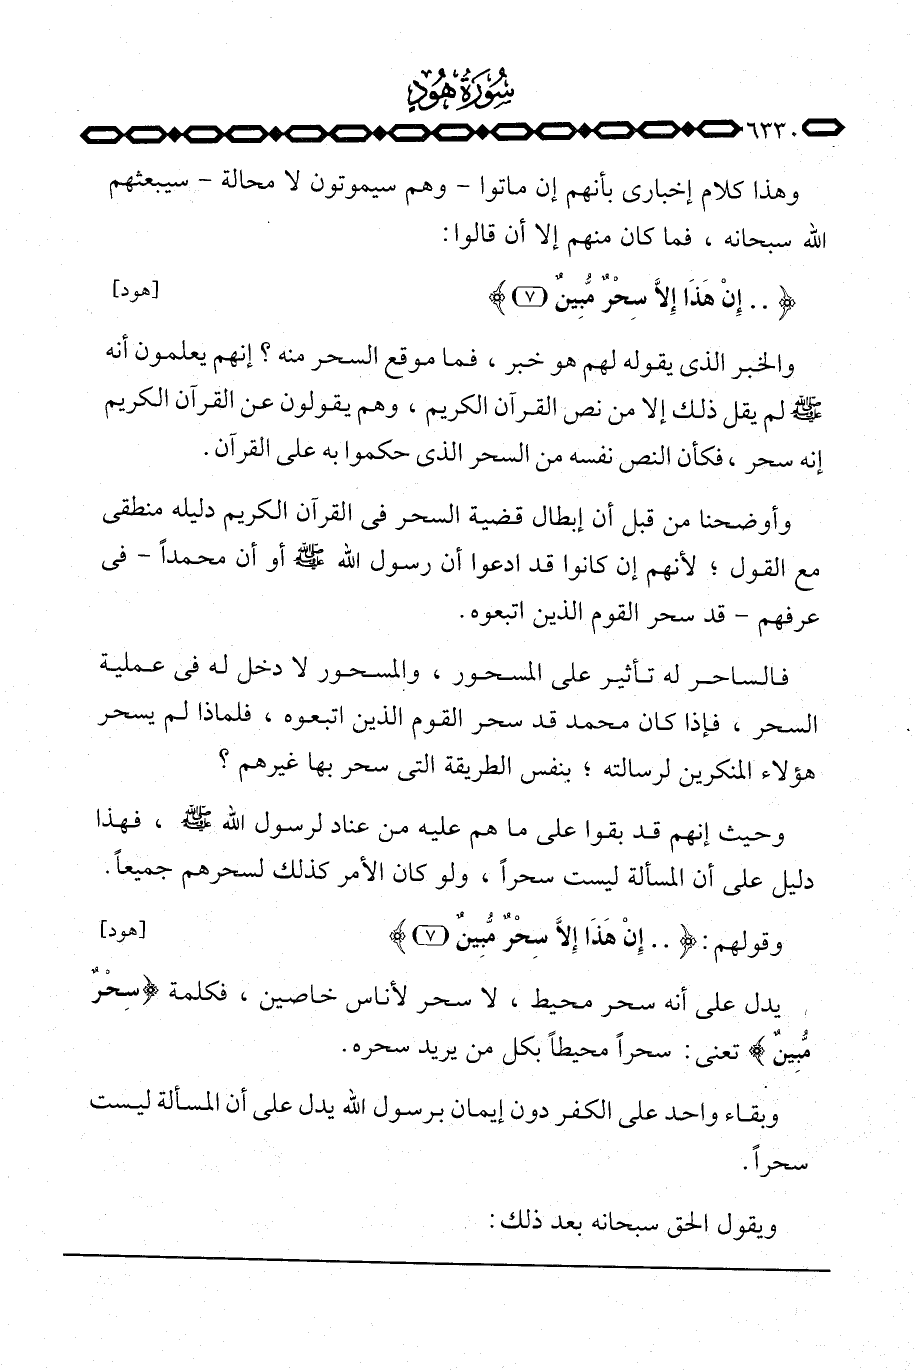 سُورَةُ هُودٍ
٦٣٣٠
وهذا كلام إخبارى بأنهم إن ماتوا – وهم سيموتون لا محالة – سيبعثهم
الله سبحانه ، فما كان منهم إلا أن قالوا :
﴿ .. إِنْ هَٰذَا إِلاَّ سِحْرٌ مُّبِينٌ (٧) ﴾ [هود]
والخبر الذى يقوله لهم هو خبر ، فما موقع السحر منه ؟ إنهم يعلمون أنه
ﷺ لم يقل ذلك إلا من نص القرآن الكريم ، وهم يقولون عن القرآن الكريم
إنه سحر ، فكأن النص نفسه من السحر الذى حكموا به على القرآن .
وأوضحنا من قبل أن إبطال قضية السحر فى القرآن الكريم دليله منطقى
مع القول ؛ لأنهم إن كانوا قد ادعوا أن رسول الله ﷺ أو أن محمداً – فى
عرفهم – قد سحر القوم الذين اتبعوه .
فالساحر له تأثير على المسحور ، والمسحور لا دخل له فى عملية
السحر ، فإذا كان محمد قد سحر القوم الذين اتبعوه ، فلماذا لم يسحر
هؤلاء المنكرين لرسالته ؛ بنفس الطريقة التى سحر بها غيرهم ؟
وحيث إنهم قد بقوا على ما هم عليه من عناد لرسول الله ﷺ ، فهذا
دليل على أن المسألة ليست سحراً ، ولو كان الأمر كذلك لسحرهم جميعاً .
وقولهم : ﴿ .. إِنْ هَٰذَا إِلاَّ سِحْرٌ مُّبِينٌ (٧) ﴾ [هود]
يدل على أنه سحر محيط ، لا سحر لأناس خاصين ، فكلمة ﴿ سِحْرٌ
مُّبِينٌ ﴾ تعنى : سحراً محيطاً بكل من يريد سحره .
وبقاء واحد على الكفر دون إيمان برسول الله يدل على أن المسألة ليست
سحراً .
ويقول الحق سبحانه بعد ذلك :